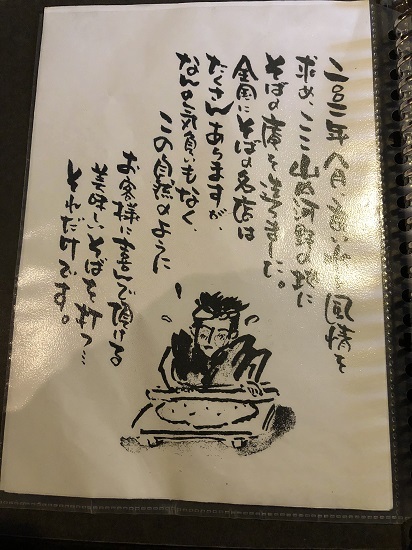 二〇〇二年 八月、い水と風情を
求め、ここ河野の地に
そばの庵を造りました。
全国にそばの名店は
たくさんありますが、
なんの気負いもなく
この自然のように
お客様に喜んで頂ける
美味しいそばを打つ…
それだけです。